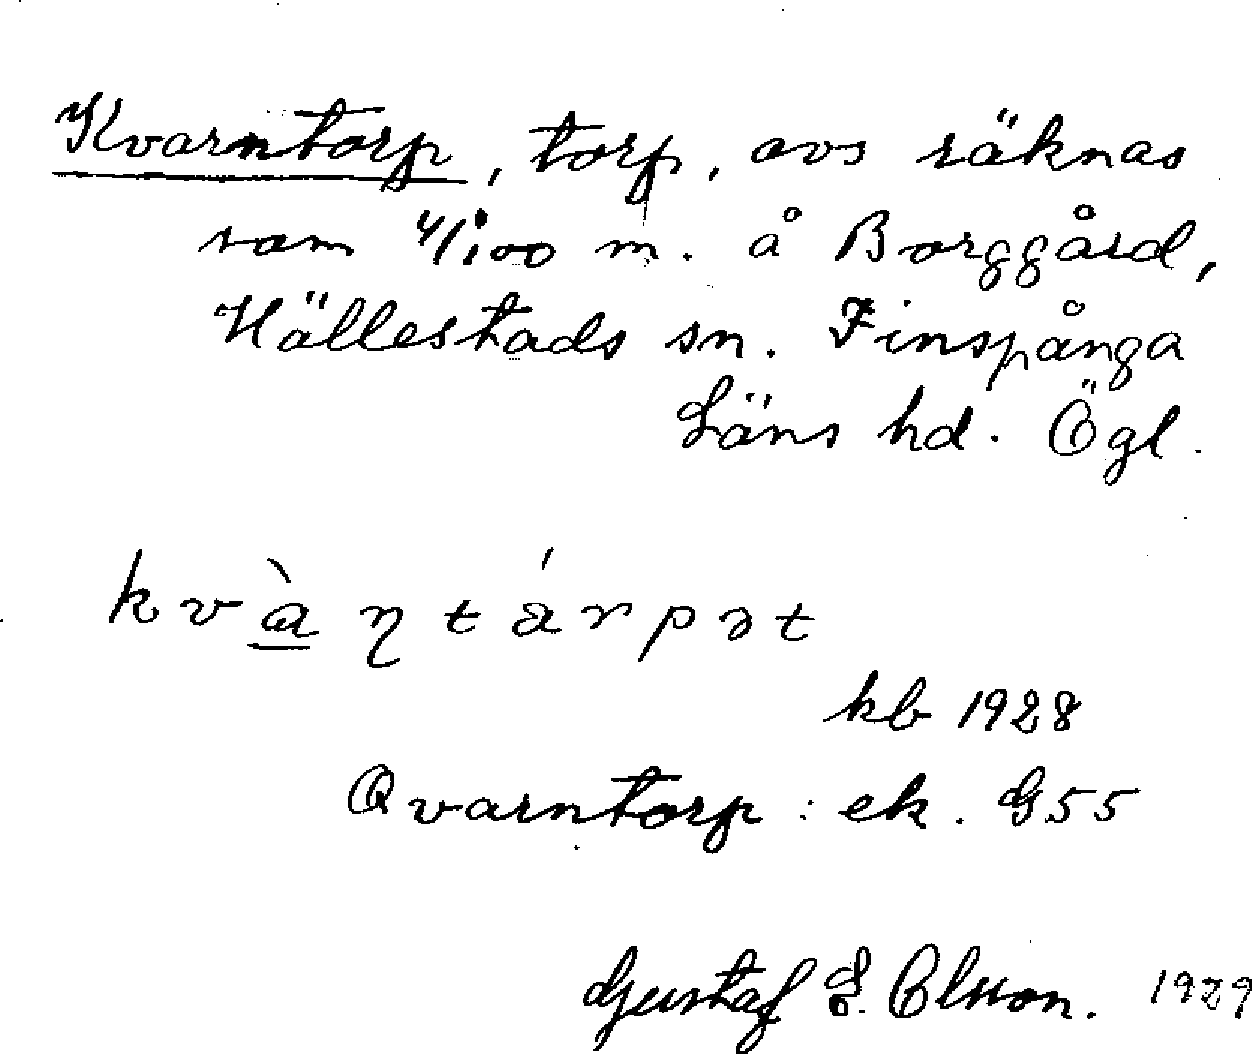 Kvarntorp, torp, avs räknas
som 4/100 m. å Borggård,
Hällestads sn. Finspånga
Läns hd. Ögl.
kvàntårpət
kb 1928
Qvarntorp: ek. G55
Gustaf E. Olsson. 1929